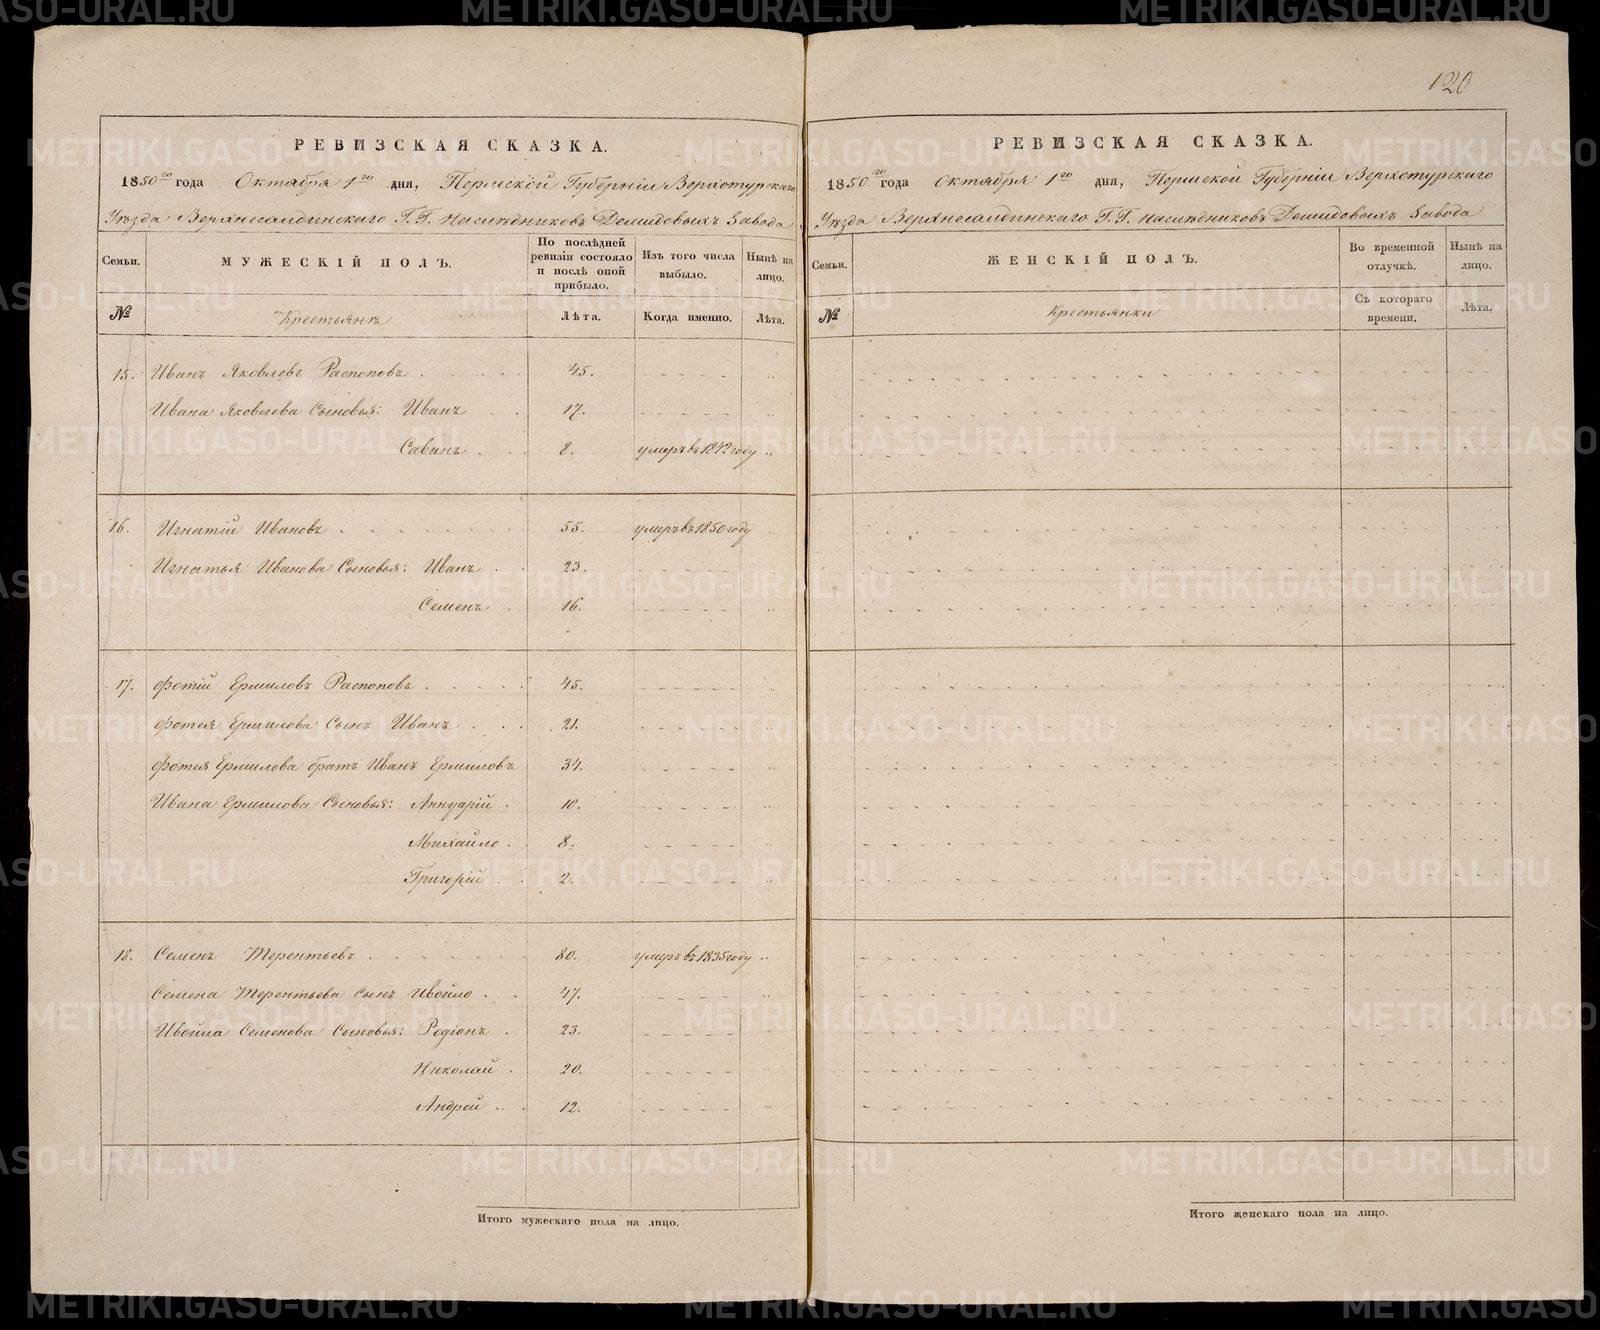 120
РЕВИЗСКАЯ СКАЗКА.
1850го года Октября 1го дня, Пермской Губерніи Верхотурскаго
Уѣзда Верхнесалдинскаго Г.Г. Наслѣдниковъ Демидовыхъ Завода
Семьи.
МУЖЕСКІЙ ПОЛЪ.
По послѣдней ревизіи состояло и послѣ оной прибыло.
Изъ того числа выбыло.
Нынѣ на лицо.
№
Крестьянъ
Лѣта.
Когда именно.
Лѣта.
15. Иванъ Яковлевъ Распоповъ 45.
Ивана Яковлева Сыновья: Иванъ 17.
Савинъ 8. умеръ въ 1842 году
16. Игнатій Ивановъ 55. умеръ въ 1850 году
Игнатья Иванова Сыновья: Иванъ 23.
Семенъ 16.
17. Фотій Ермиловъ Распоповъ 45.
Фотея Ермилова Сынъ Иванъ 21.
Фотея Ермилова братъ Иванъ Ермиловъ 34.
Ивана Ермилова Сыновья: Аннуарій 10.
Михайло 8.
Григорій 2.
18. Семенъ Терентьевъ 80. умеръ въ 1835 году
Семена Терентьева сынъ Ивойло 47.
Ивойла Семенова Сыновья: Родіонъ 23.
Николай 20.
Андрей 12.
Итого мужескаго пола на лицо.
РЕВИЗСКАЯ СКАЗКА.
1850го года Октября 1го дня, Пермской Губерніи Верхотурскаго
Уѣзда Верхнесалдинскаго Г.Г. Наслѣдниковъ Демидовыхъ Завода
Семьи.
ЖЕНСКІЙ ПОЛЪ.
Во временной отлучкѣ.
Нынѣ на лицо.
№
Крестьянки
Съ котораго времени.
Лѣта.
Итого женскаго пола на лицо.
METRIKI.GASO-URAL.RU